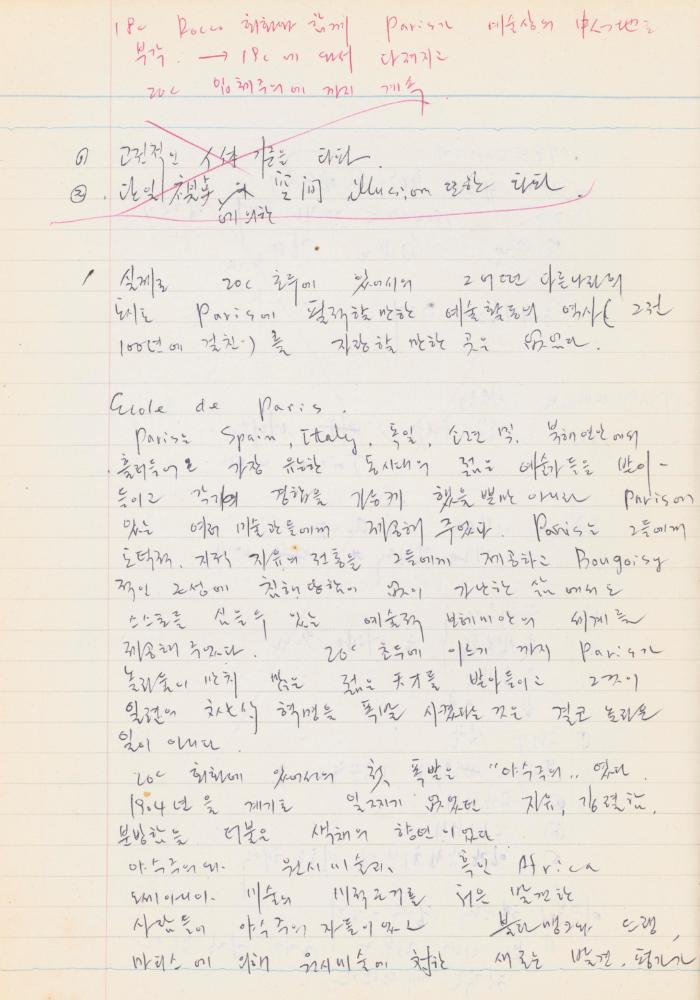 18c Rococo 회화와 함께 Paris가 예술상의 中心地로
부각. → 19c에 와서 다져지고
20c 입체주의에 까지 계속
① 고전적인 人体 기준을 타파.
② 단일 視点에 의한 空间 illusion 또한 타파.
실제로 20c 초두에 있어서의 그 어떤 다른나라의
도시도 Paris에 필적할 만한 예술활동의 역사(그전
100년에 걸친)를 자랑할 만한 곳은 없었다.
Ecole de Paris.
Paris는 Spain, Italy, 독일, 소련 및 북해연안에서
흘러들어온 가장 유능한 동시대의 젊은 예술가들을 받아-
들이고 각기의 경합을 가능케 했을 뿐만 아니라 Paris에
있는 여러 미술관들에게 제공해 주었다. Paris는 그들에게
도덕적, 지적 자유의 전통을 그들에게 제공하고 Bougoisy
적인 근성에 침해 당함이 없이 가난한 삶에서도
스스로를 있는 예술적 보헤미안의 세계를
제공해 주었다. 20c 초두에 이르기 까지 Paris가
놀라울이 만치 많은 젊은 天才를 받아들이고 그것이
일련의 혁명을 폭발 시켰다는 것은 결코 놀라운
일이 아니다.
20c 회화에 있어서의 첫 폭발은 "야수주의" 였다.
1904년을 계기로 일찌기 없었던 자유, 강렬함,
분방함을 더불은 색채의 향연이었다.
야수주의와 원시미술과, 흑인 Africa
오세아니아 미술의 미적 근거를 처음 발견한
사람들이 야수주의 자들이었고 블라맹크와 드랭,
마티스에 의해 원시미술에 대한 새로운 발견, 평가가